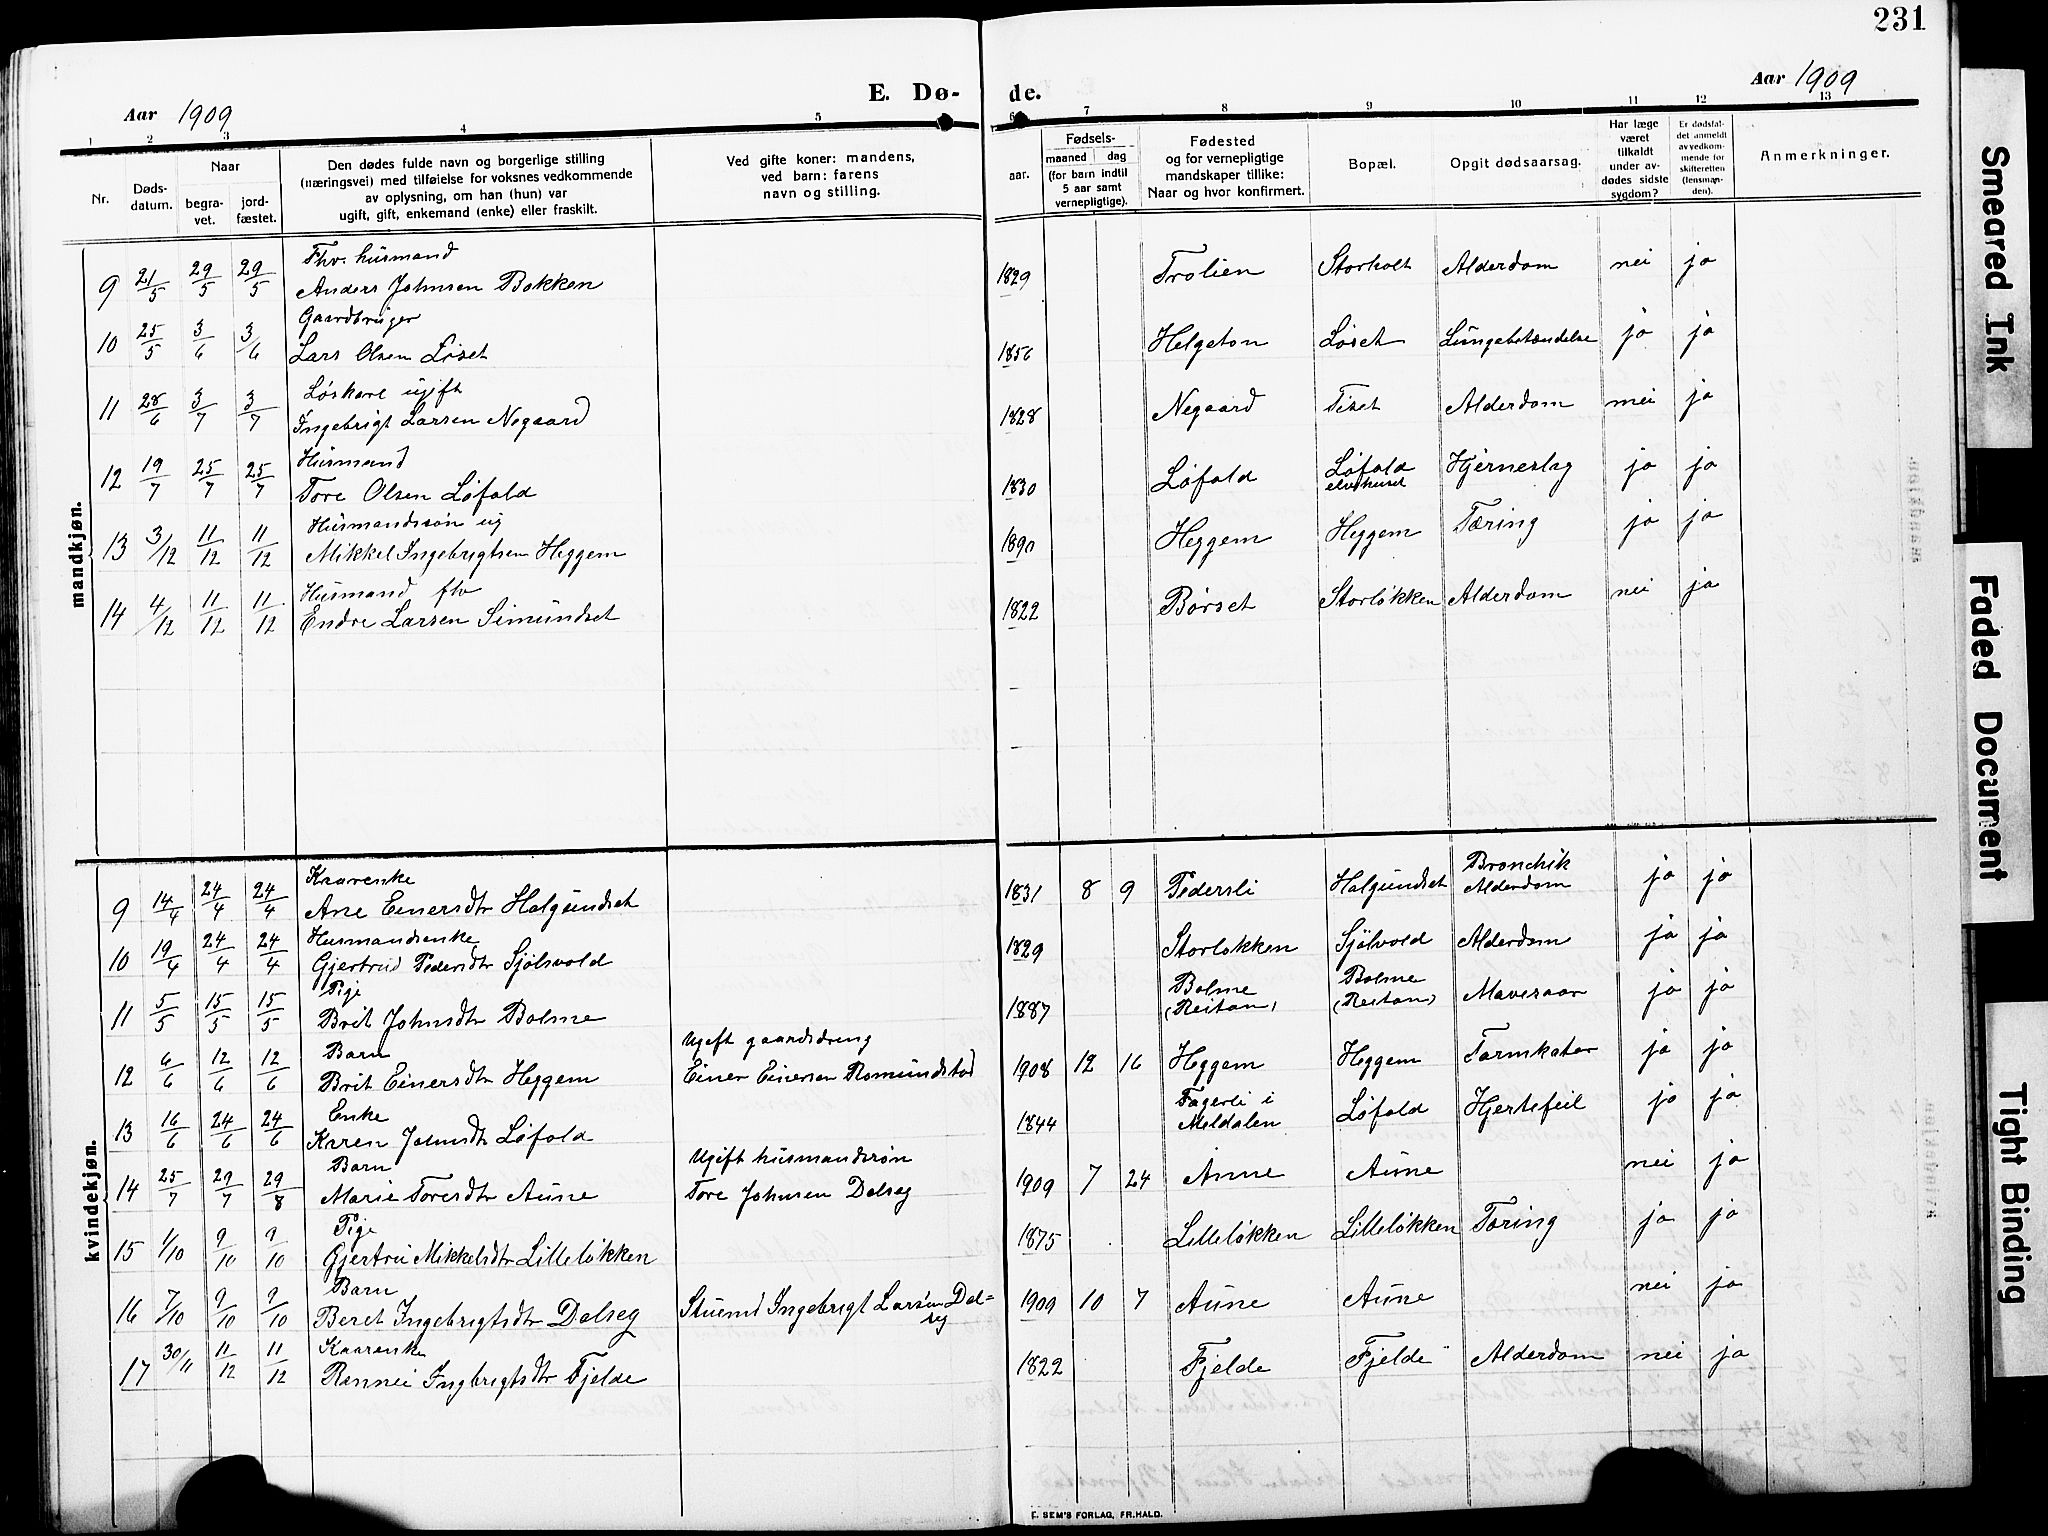 231
Aar 1909 E. Dø- de. Aar 1909
1 2 3 4 5 6 7 8 9 10 11 12 13
Nr.
Døds-
datum.
Naar
begra-
vet.
jord-
fæstet.
Den dødes fulde navn og borgerlige stilling
(næringsvei) med tilføielse for voksnes vedkommende
av oplysning, om han (hun) var
ugift, gift, enkemand (enke) eller fraskilt.
Ved gifte koner: mandens,
ved barn: farens
navn og stilling.
aar.
Fødsels-
maaned dag
(for barn indtil
5 aar samt
vernepligtige).
Fødested
og for vernepligtige
mandskaper tillike:
Naar og hvor konfirmert.
Bopæl.
Opgit dødsaarsag.
Har læge
været
tilkaldt
under av-
dødes sidste
sygdom?
Er dødsfal-
det anmeldt
av vedkom-
mende for
skifteretten
(lensman-
den).
Anmerkninger.
mandkjøn.
Fhv. husmand
9 21/5 29/5 29/5 Anders Johnsen Bakken 1829 Trolien Storholt Alderdom nei ja
Gaardbruger
10 25/5 3/6 3/6 Lars Olsen Løset 1856 Helgeton Løset Lungebetændelse ja ja
Løskarl ugift
11 28/6 3/7 3/7 Ingebrigt Larsen Negaard 1828 Negaard Tiset Alderdom nei ja
Husmand
12 19/7 25/7 25/7 Tore Olsen Løfald 1830 Løfald Løfald Hjerneslag ja ja
Husmandssøn ug
13 3/12 11/12 11/12 Mikkel Ingebrigtsen Heggem 1890 Heggem Heggem Tæring ja ja
Husmand fhv
14 4/12 11/12 11/12 Endre Larsen Simundset 1822 Børset Storløkken Alderdom nei ja
kvindekjøn.
Kaarenke Bronchik
9 14/4 24/4 24/4 Ane Einersdtr Halgundset 1831 8 9 Pedersli Halgundset Alderdom ja ja
Husmandsenke
10 19/4 24/4 24/4 Gjertrud Pedersdtr Sjølsvold 1829 Storløkken Sjölvold Alderdom ja ja
Pige Bolme Bolme
11 5/5 15/5 15/5 Brit Johnsdtr Bolme 1887 (Reitan) (Reitan) Mavesaar ja ja
Barn Ugift gaardsdreng
12 6/6 12/6 12/6 Brit Einersdtr Heggem Einer Einersen Romundstad 1908 12 16 Heggem Heggem Tarmkatar ja ja
Enke Fagerli i
13 16/6 24/6 24/6 Karen Johnsdtr Løfald 1844 Meldalen Løfald Hjertefeil ja ja
Barn Ugift husmandssøn
14 25/7 29/7 29/8 Marie Toresdtr Aune Tore Johnsen Dalseg 1909 7 24 Aune Aune nei ja
Pige
15 1/10 9/10 9/10 Gjertru Mikkelsdtr Lilleløkken 1875 Lilleløkken Lilleløkken Tæring ja ja
Barn
16 7/10 9/10 9/10 Beret Ingebrigtsdtr Dalseg Ingebrigt Larsen Dal=
seg 1909 10 7 Aune Aune nei ja
Kaarenke
17 30/11 11/12 11/12 Rennei Ingbrigtsdtr Fjelde 1822 Fjelde Fjelde Alderdom nei ja
E. SEM'S FORLAG, FR.HALD.
Smeared Ink
Faded Document
Tight Binding